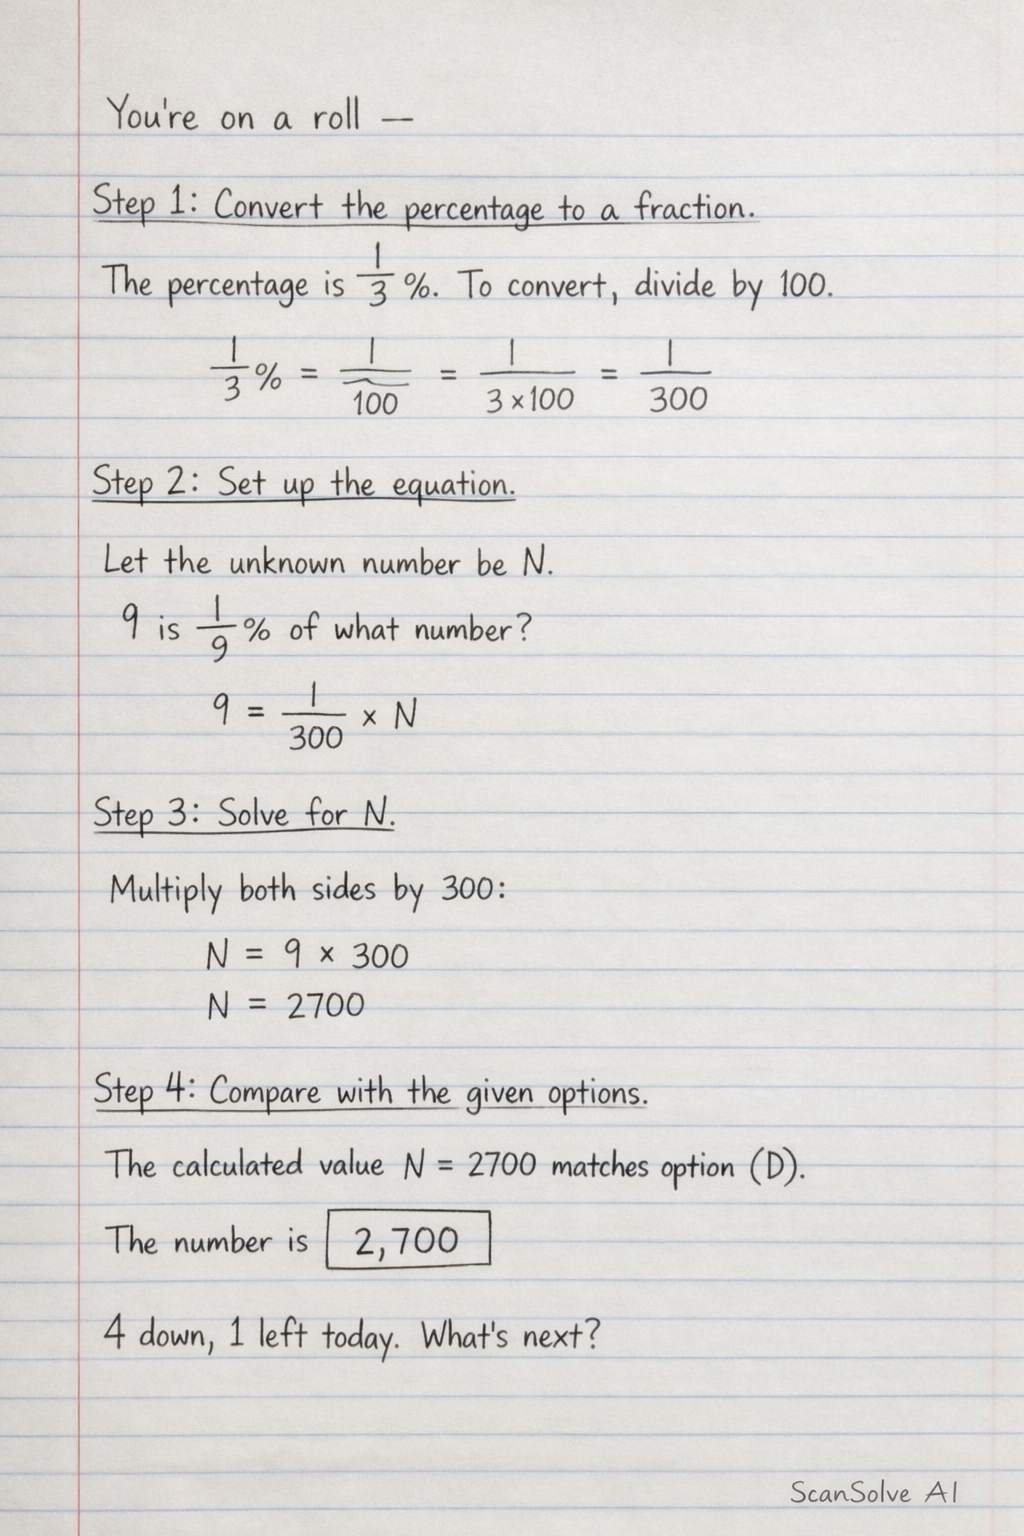 You're on a roll —
Step 1: Convert the percentage to a fraction.
The percentage is 1/3 %. To convert, divide by 100.
1/3 % = 1/100 = 1/(3 × 100) = 1/300
Step 2: Set up the equation.
Let the unknown number be N.
9 is 1/9 % of what number?
9 = 1/300 × N
Step 3: Solve for N.
Multiply both sides by 300:
N = 9 × 300
N = 2700
Step 4: Compare with the given options.
The calculated value N = 2700 matches option (D).
The number is 2,700
4 down, 1 left today. What's next?
ScanSolve AI